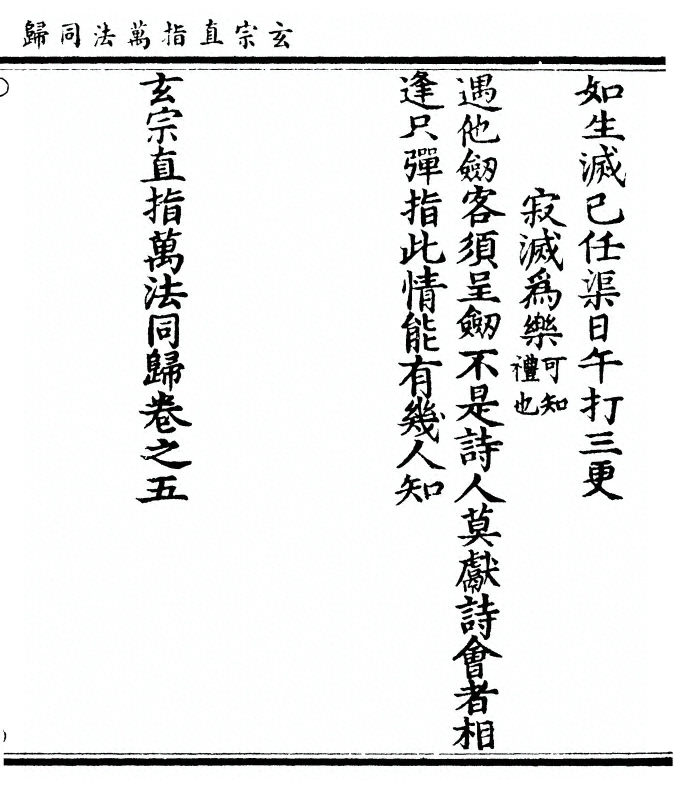 玄宗直指萬法同歸
如生滅已任渠日午打三更
寂滅爲樂可知禮也
遇他劒客須呈劒不是詩人莫獻詩會者相
逢只彈指此情能有幾人知
玄宗直指萬法同歸卷之五